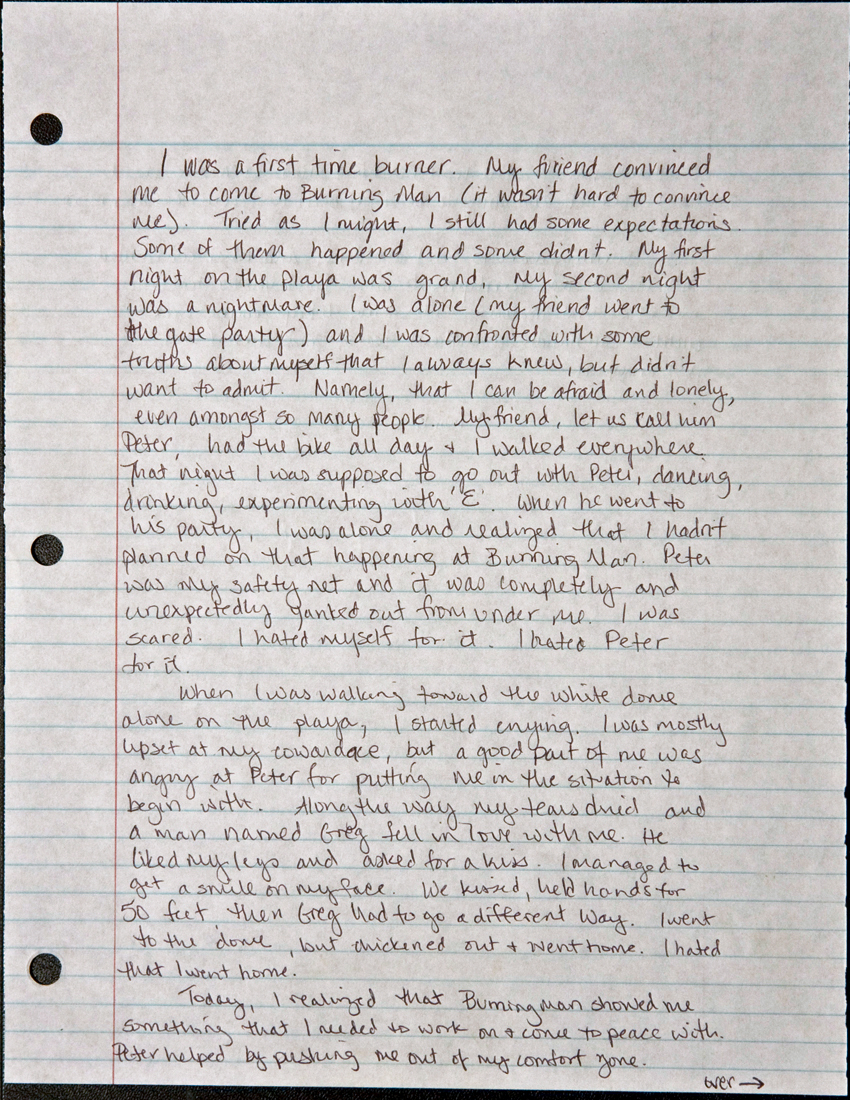 I was a first time burner. My friend convinced
me to come to Burning Man (it wasn't hard to convince
me). Tried as I might, I still had some expectations.
Some of them happened and some didn't. My first
night on the playa was grand, my second night
was a nightmare. I was alone (my friend went to
the gate party) and I was confronted with some
truths about myself that I always knew, but didn't
want to admit. Namely, that I can be afraid and lonely,
even amongst so many people. My friend, let us call him
Peter, had the bike all day & I walked everywhere.
That night I was supposed to go out with Peter, dancing,
drinking, experimenting with 'E'. When he went to
his party, I was alone and realized that I hadn't
planned on that happening at Burning Man. Peter
was my safety net and it was completely and
unexpectedly yanked out from under me. I was
scared. I hated myself for it. I hated Peter
for it.
When I was walking toward the white dome
alone on the playa, I started crying. I was mostly
upset at my cowardace, but a good part of me was
angry at Peter for putting me in the situation to
begin with. Along the way my tears dried and
a man named Greg fell in love with me. He
liked my legs and asked for a kiss. I managed to
get a smile on my face. We kissed, held hands for
50 feet then Greg had to go a different way. I went
to the dome, but chickened out & went home. I hated
that I went home.
Today, I realized that Burningman showed me
something that I needed to work on & come to peace with.
Peter helped by pushing me out of my comfort zone.
over →